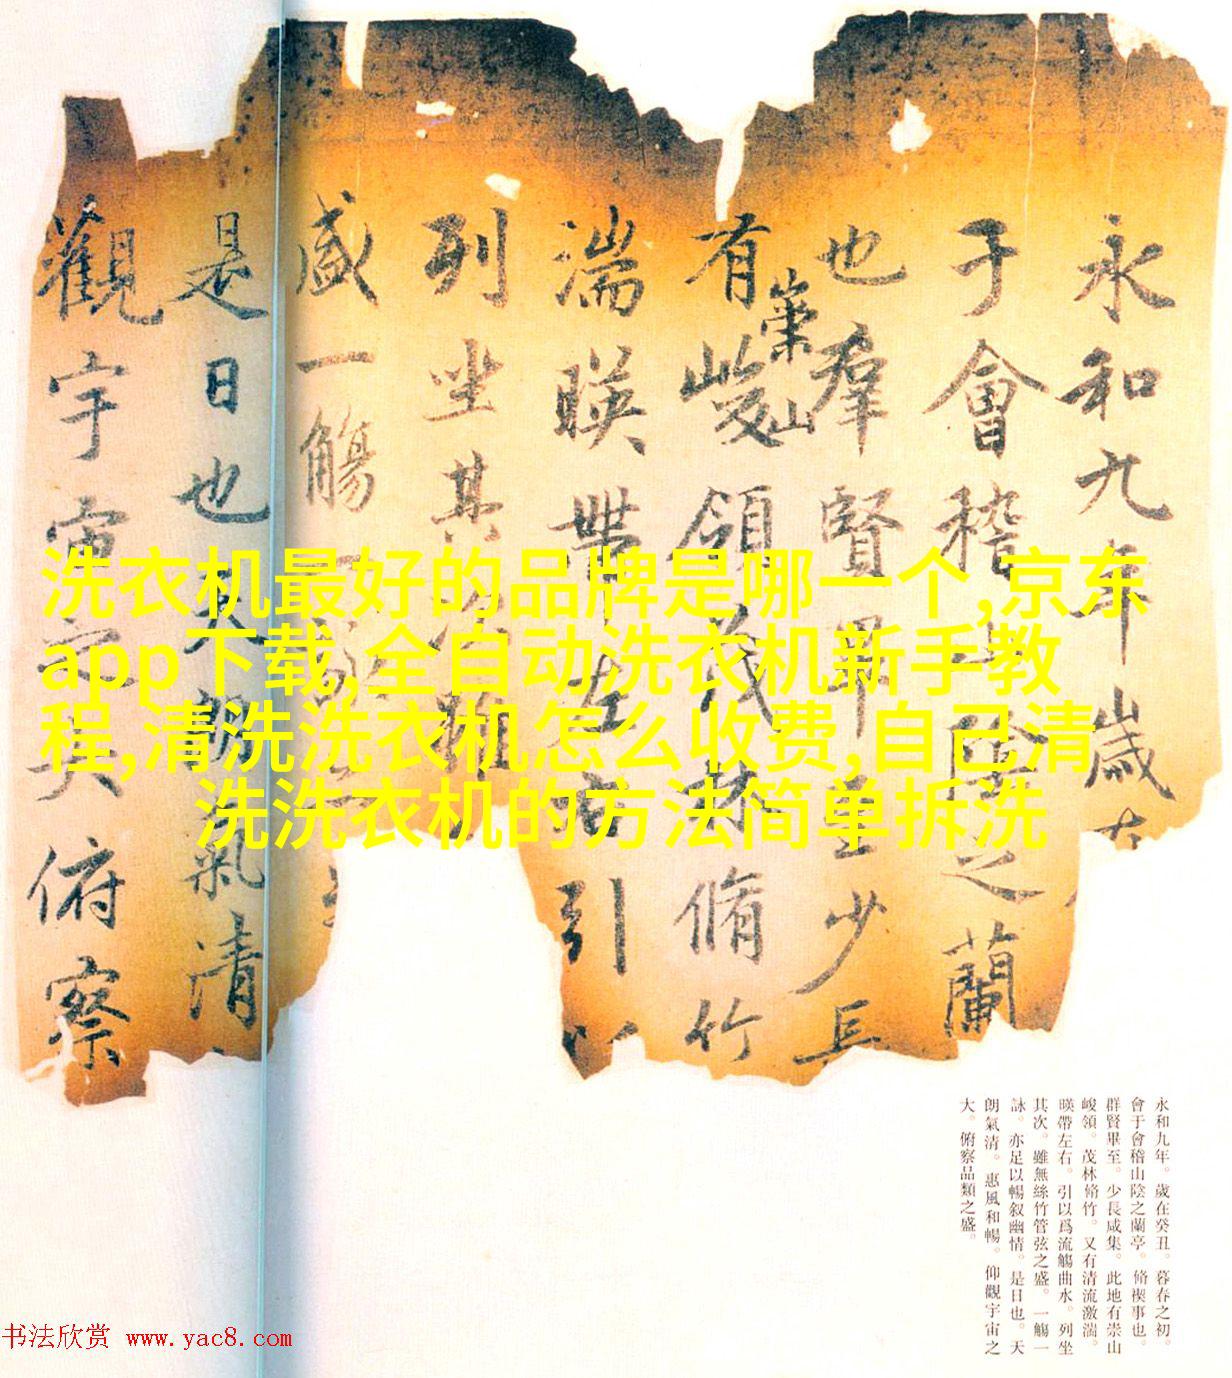 永和九年歲在
于會稽山陰之蘭
也羣賢畢至少長
有崇山峻領茂林脩竹
湍暎帶左右引以
列坐其次雖
盛一觴一詠
是日也天朗氣清
觀宇宙之大俯察
洗衣机最好的品牌是哪一个,京东
app下载,全自动洗衣机新手教
程,清洗洗衣机怎么收费,自己清
洗洗衣机的方法简单拆洗
永和九年。歲在癸丑。暮春之初。
會于會稽山陰之蘭亭。脩禊事也。
群賢畢至。少長咸集。此地有崇山
峻領。茂林脩竹。又有清流激湍。
暎帶左右。引以爲流觴曲水。列坐
其次。雖無絲竹管弦之盛。一觴一
詠。亦足以暢叙幽情。是日也。天
朗氣清。惠風和暢。仰觀宇宙之
大。俯察品類之盛。
书法欣赏 www.yac8.com